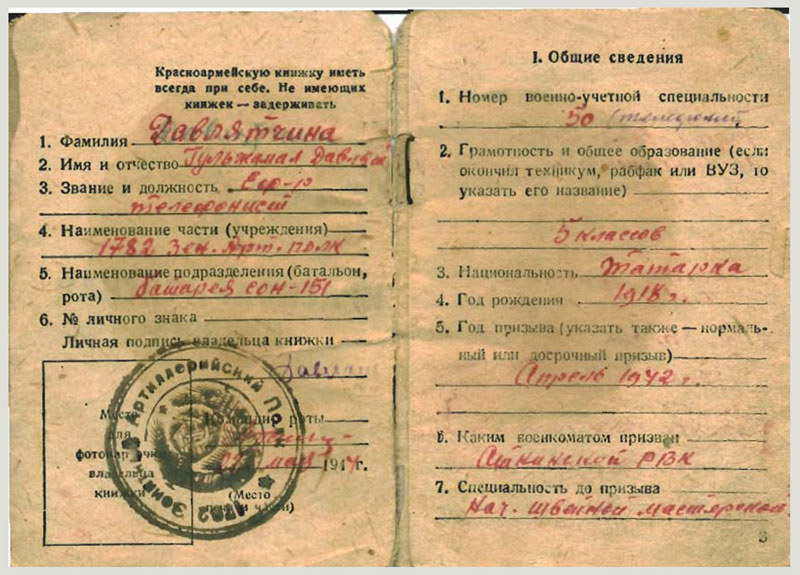 Красноармейскую книжку иметь
всегда при себе. Не имеющих
книжек — задерживать
1. Фамилия Давлятчина
2. Имя и отчество Гульжамал
3. Звание и должность Еф-р
телефонист
4. Наименование части (учреждения)
1782 Зен. Арт. полк
5. Наименование подразделения (батальон,
рота) батарея СОН-151
6. № личного знака
Личная подпись владельца книжки
Место
для
фотокарточки
владельца
книжки
Командир роты
мая 1944 г.
(Место
печати части)
1782 Зенитно Артиллерийский Полк
I. Общие сведения
1. Номер военно-учетной специальности
50
2. Грамотность и общее образование (если
окончил техникум, рабфак или ВУЗ, то
указать его название)
5 классов
3. Национальность Татарка
4. Год рождения 1918 г.
5. Год призыва (указать также — нормаль-
ный или досрочный призыв)
Апрель 1942 г.
6. Каким военкоматом призван
Аткинской РВК
7. Специальность до призыва
Нач. швейной мастерской
3